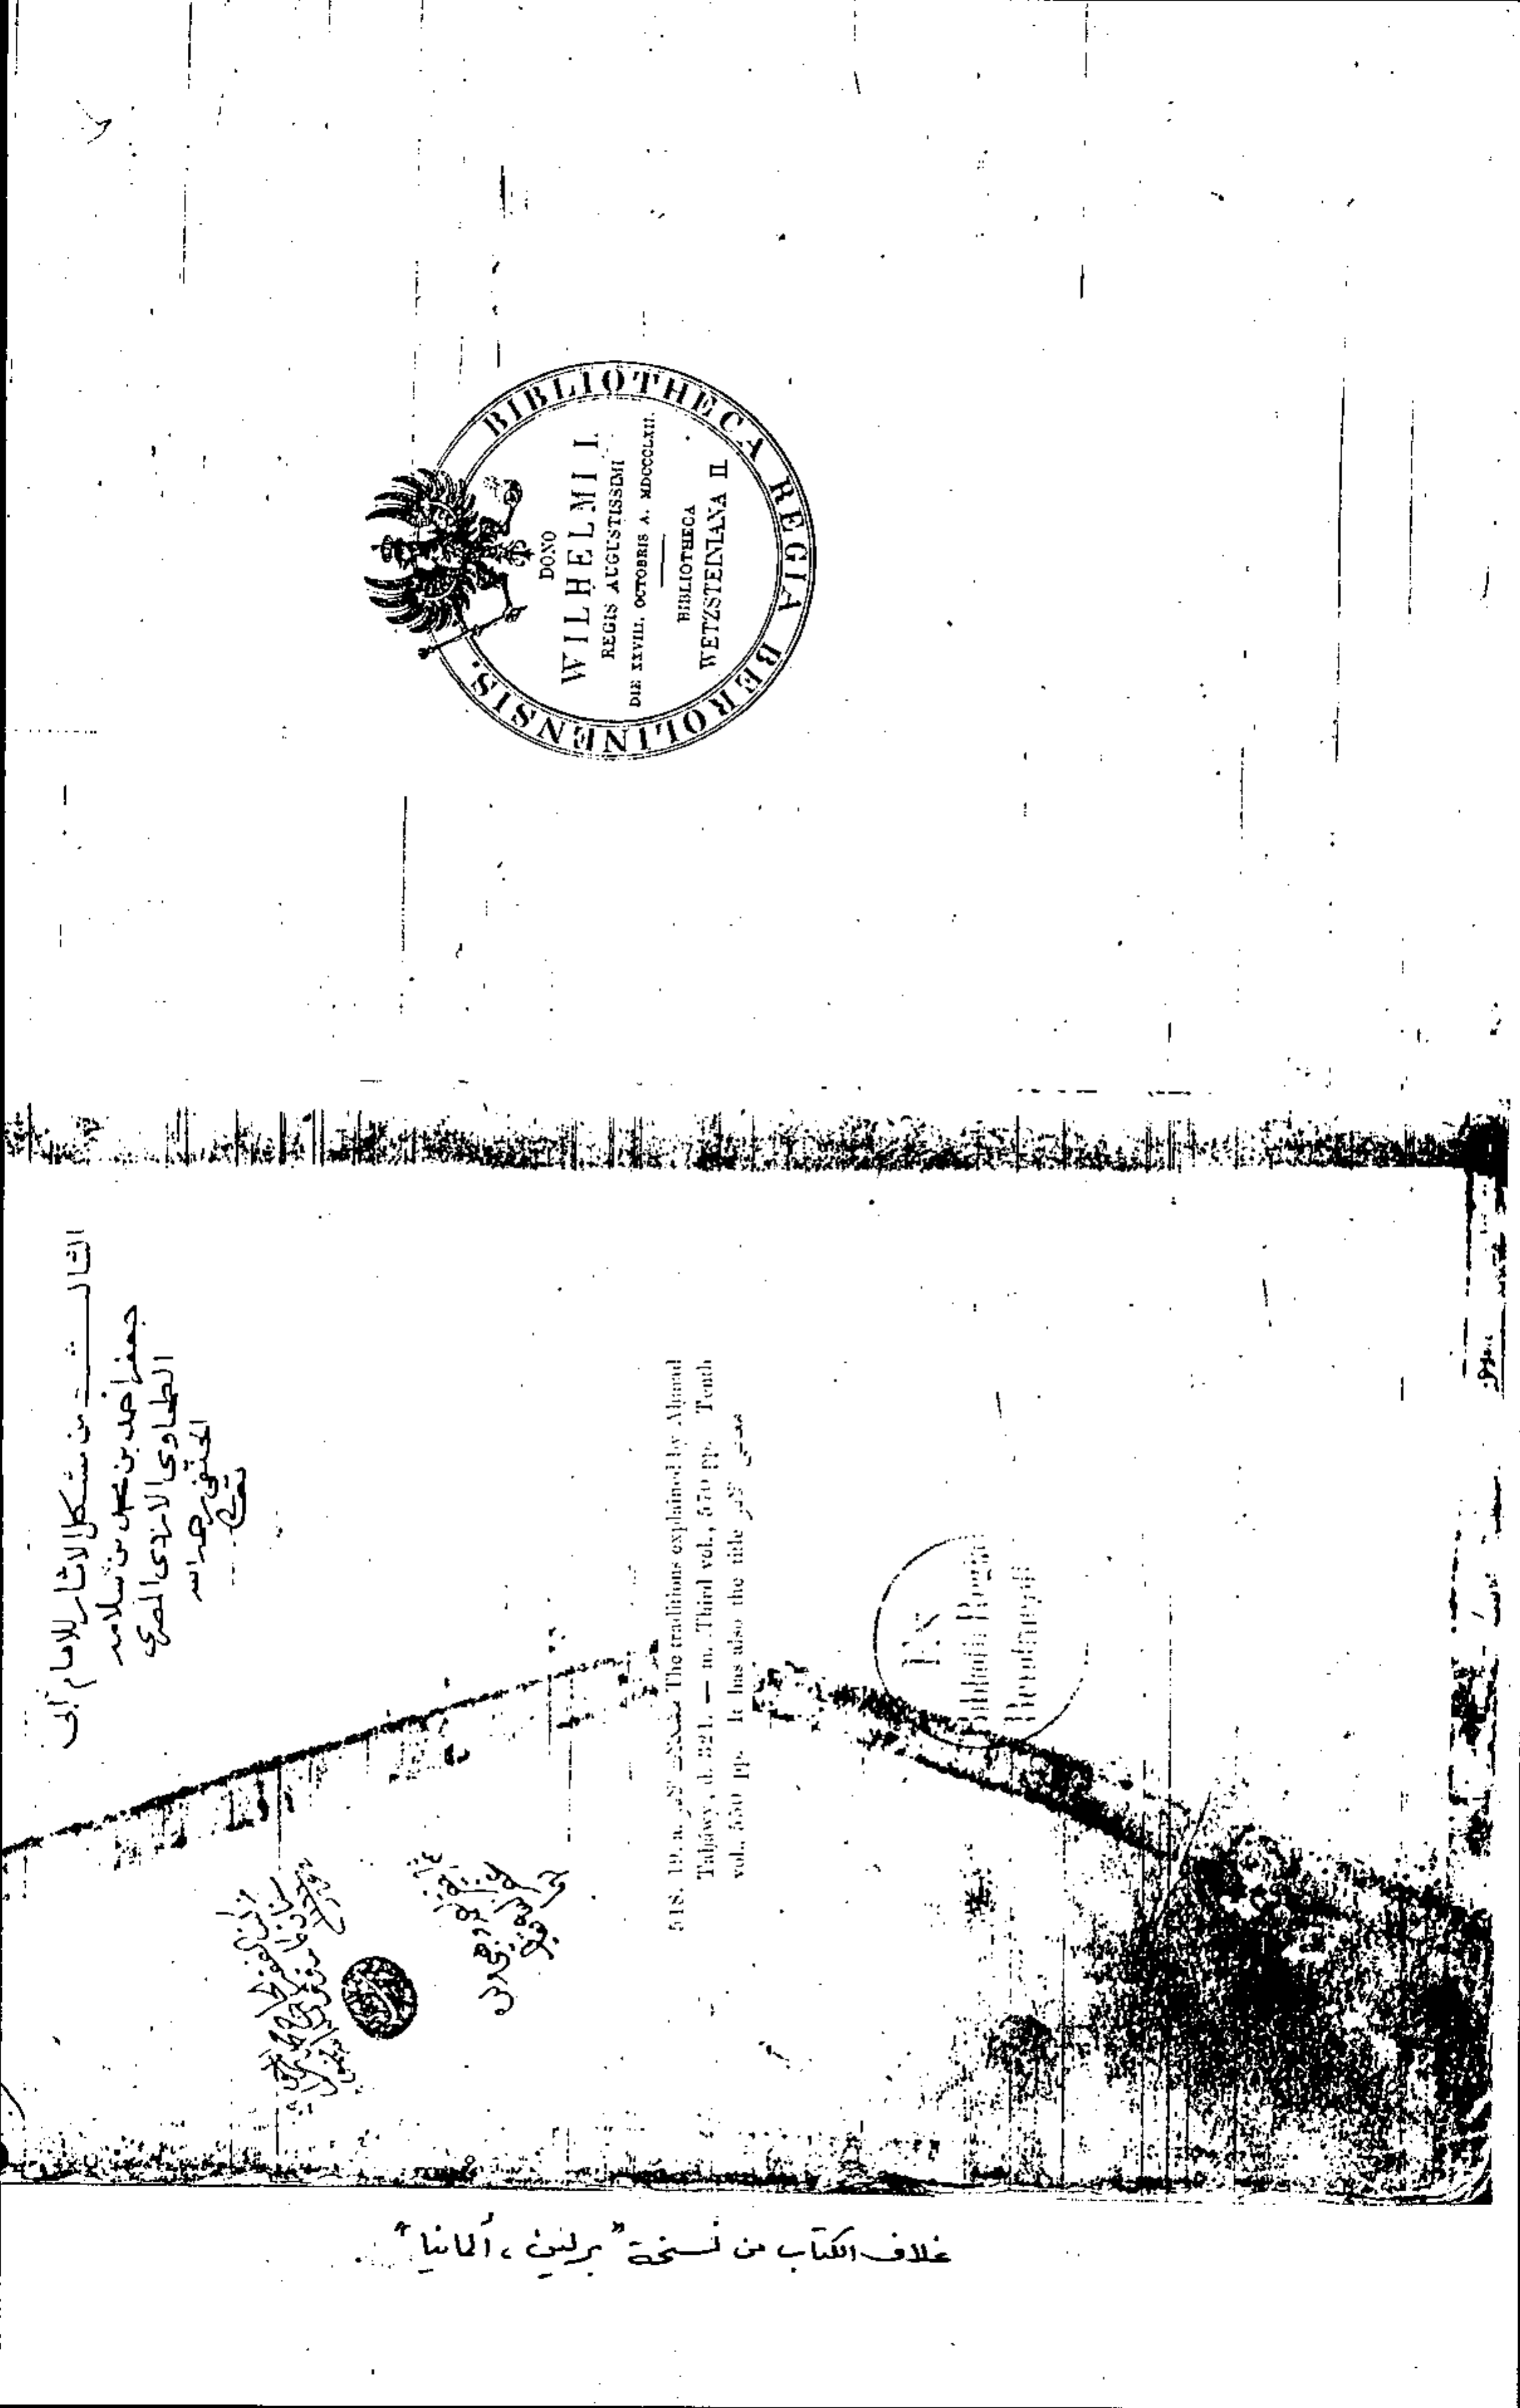 BIBLIOTHECA REGIA BEROLINENSIS.
DONO
WILHELMI I.
REGIS AUGUSTISSIMI
DIE XXVIII. OCTOBRIS A. MDCCCLXII.
BIBLIOTHECA
WETZSTEINIANA II.
الثالث من مشكل الاثار للامام ابى
جعفر احمد بن محمد بن سلامه
الطحاوى الازدى المصرى
الحنفى رحمه الله
518. 19. a. The traditions explained by Ahmad
Tahâwy, d. 321. — m. Third vol., 570 pp. Tenth
vol., 550 pp. It has also the title
Ex
Biblioth. Regia
Berolinensi
غلاف الكتاب من نسخة "برلين ، ألمانيا"